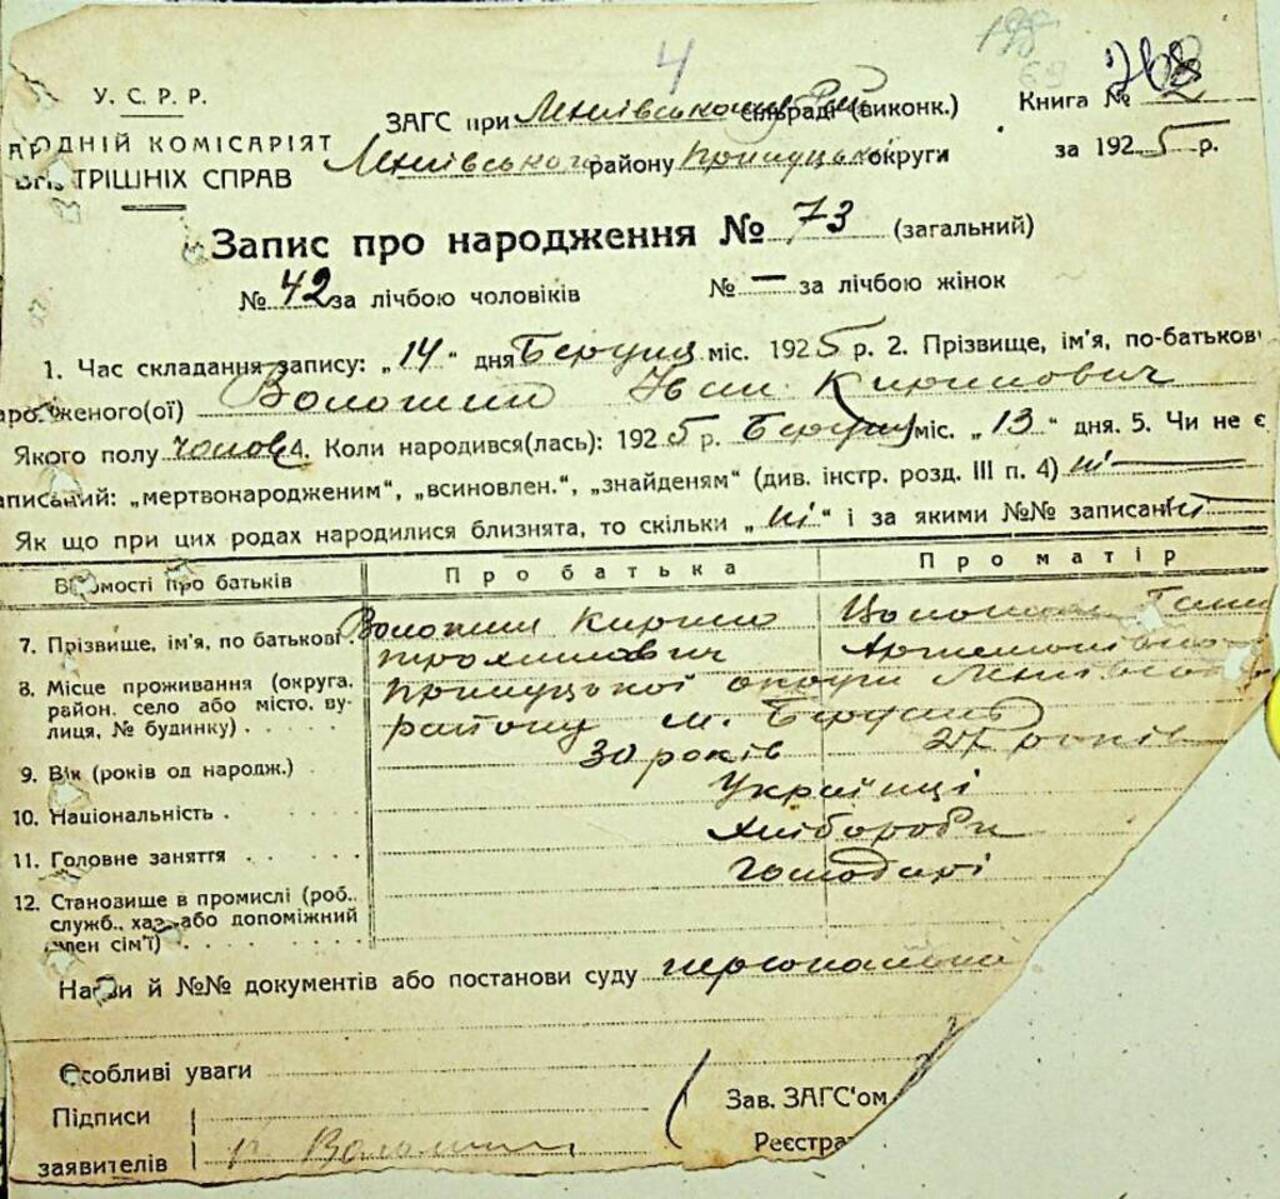 4
У. С. Р. Р.
РОДНІЙ КОМІСАРІЯТ
ВН ТРІШНІХ СПРАВ
ЗАГС при сільраді (виконк.)
району Прилуцької округи
Книга № 2
за 1925 р.
Запис про народження № 73 (загальний)
№ 42 за лічбою чоловіків № — за лічбою жінок
1. Час складання запису: „14“ дня Березня міс. 1925 р. 2. Прізвище, ім'я, по-батькові
народженого(ої) Волошин Іван Кирилович
Якого полу чолов. 4. Коли народився(лась): 1925 р. Березня міс. „13“ дня. 5. Чи не є
записаний: „мертвонародженим“, „всиновлен.“, „знайденям“ (див. інстр. розд. III п. 4) ні
Як що при цих родах народилися близнята, то скільки „ні“ і за якими №№ записані ні
Відомості про батьків Про батька Про матір
7. Прізвище, ім'я, по батькові Волошин Кирило
8. Місце проживання (округа, Прилуцької округи
район, село або місто, ву- району м.
лиця, № будинку)
9. Вік (років од народж.) 30 років років
10. Національність Українці
11. Головне заняття Хлібороби
12. Становище в промислі (роб., Господарі
служб., хаз. або допоміжний
член сім'ї)
Назви й №№ документів або постанови суду
Особливі уваги
Підписи
заявителів К Волошин
Зав. ЗАГС'ом
Реєстра